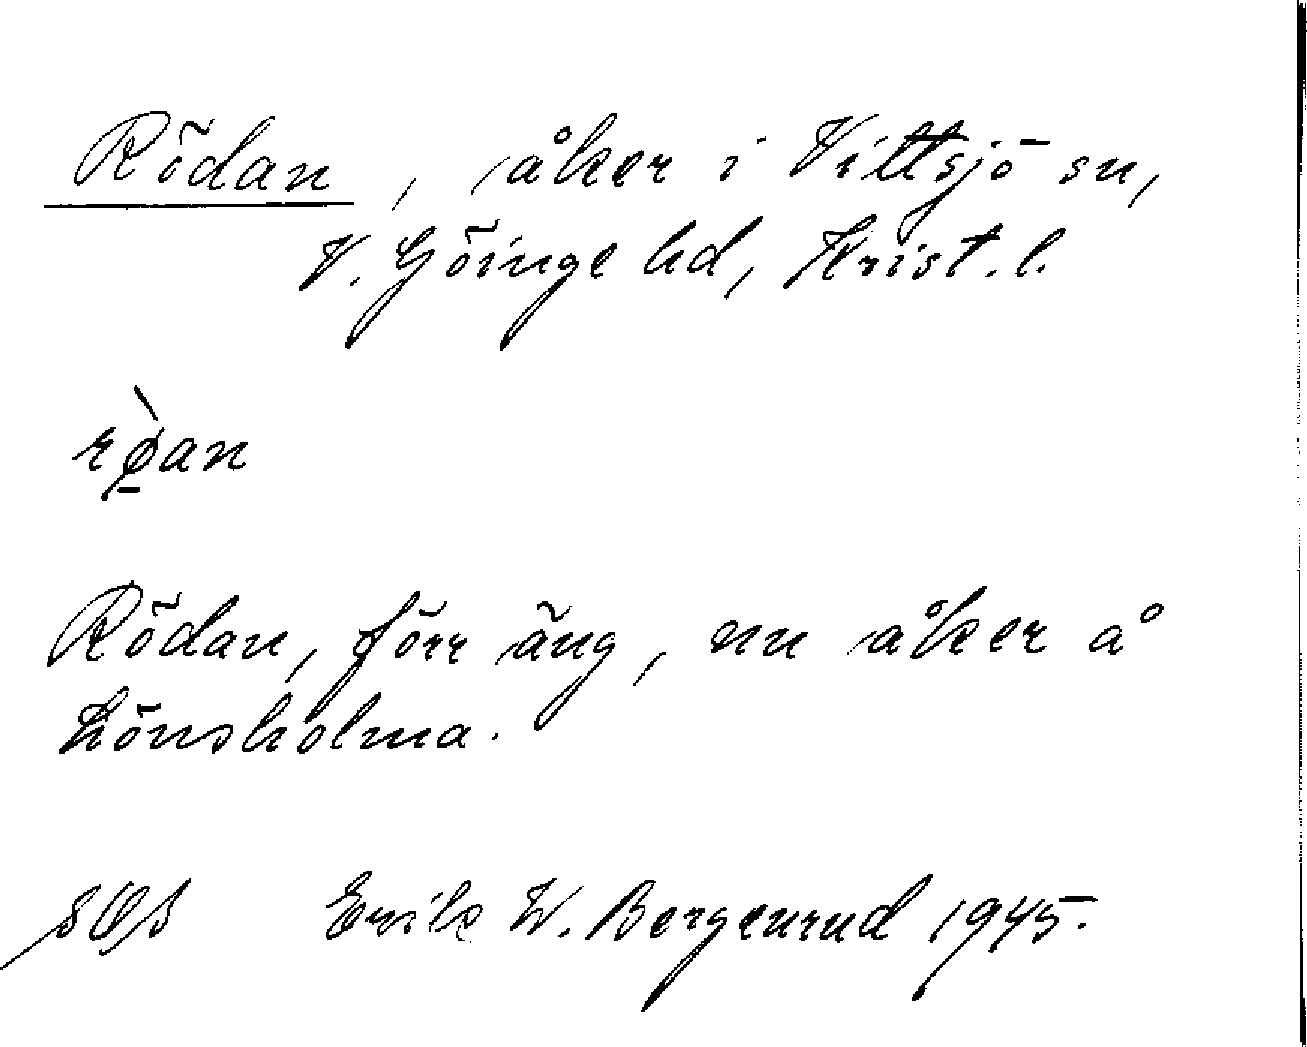 Rödan, åker i Vittsjö sn,
V. Göinge hd, Krist. l.
rø̱̀an
Rödan, förr äng, nu åker å
Lönsholma.
Erik W. Bergenrud 1945.